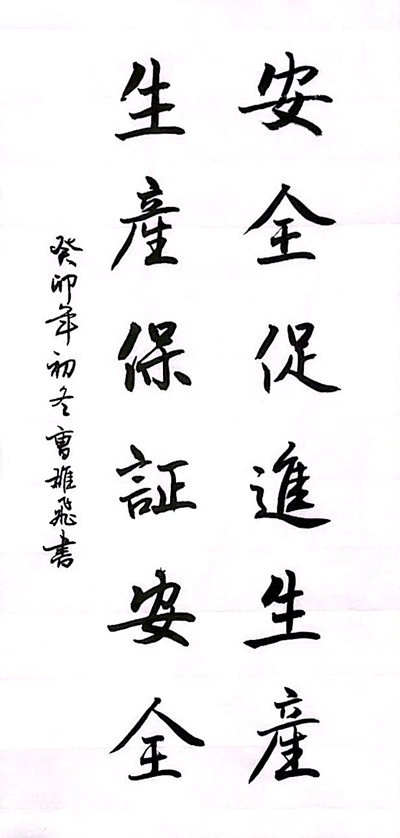 安全促進生產
生產保証安全
癸卯年初冬曹雄飛書